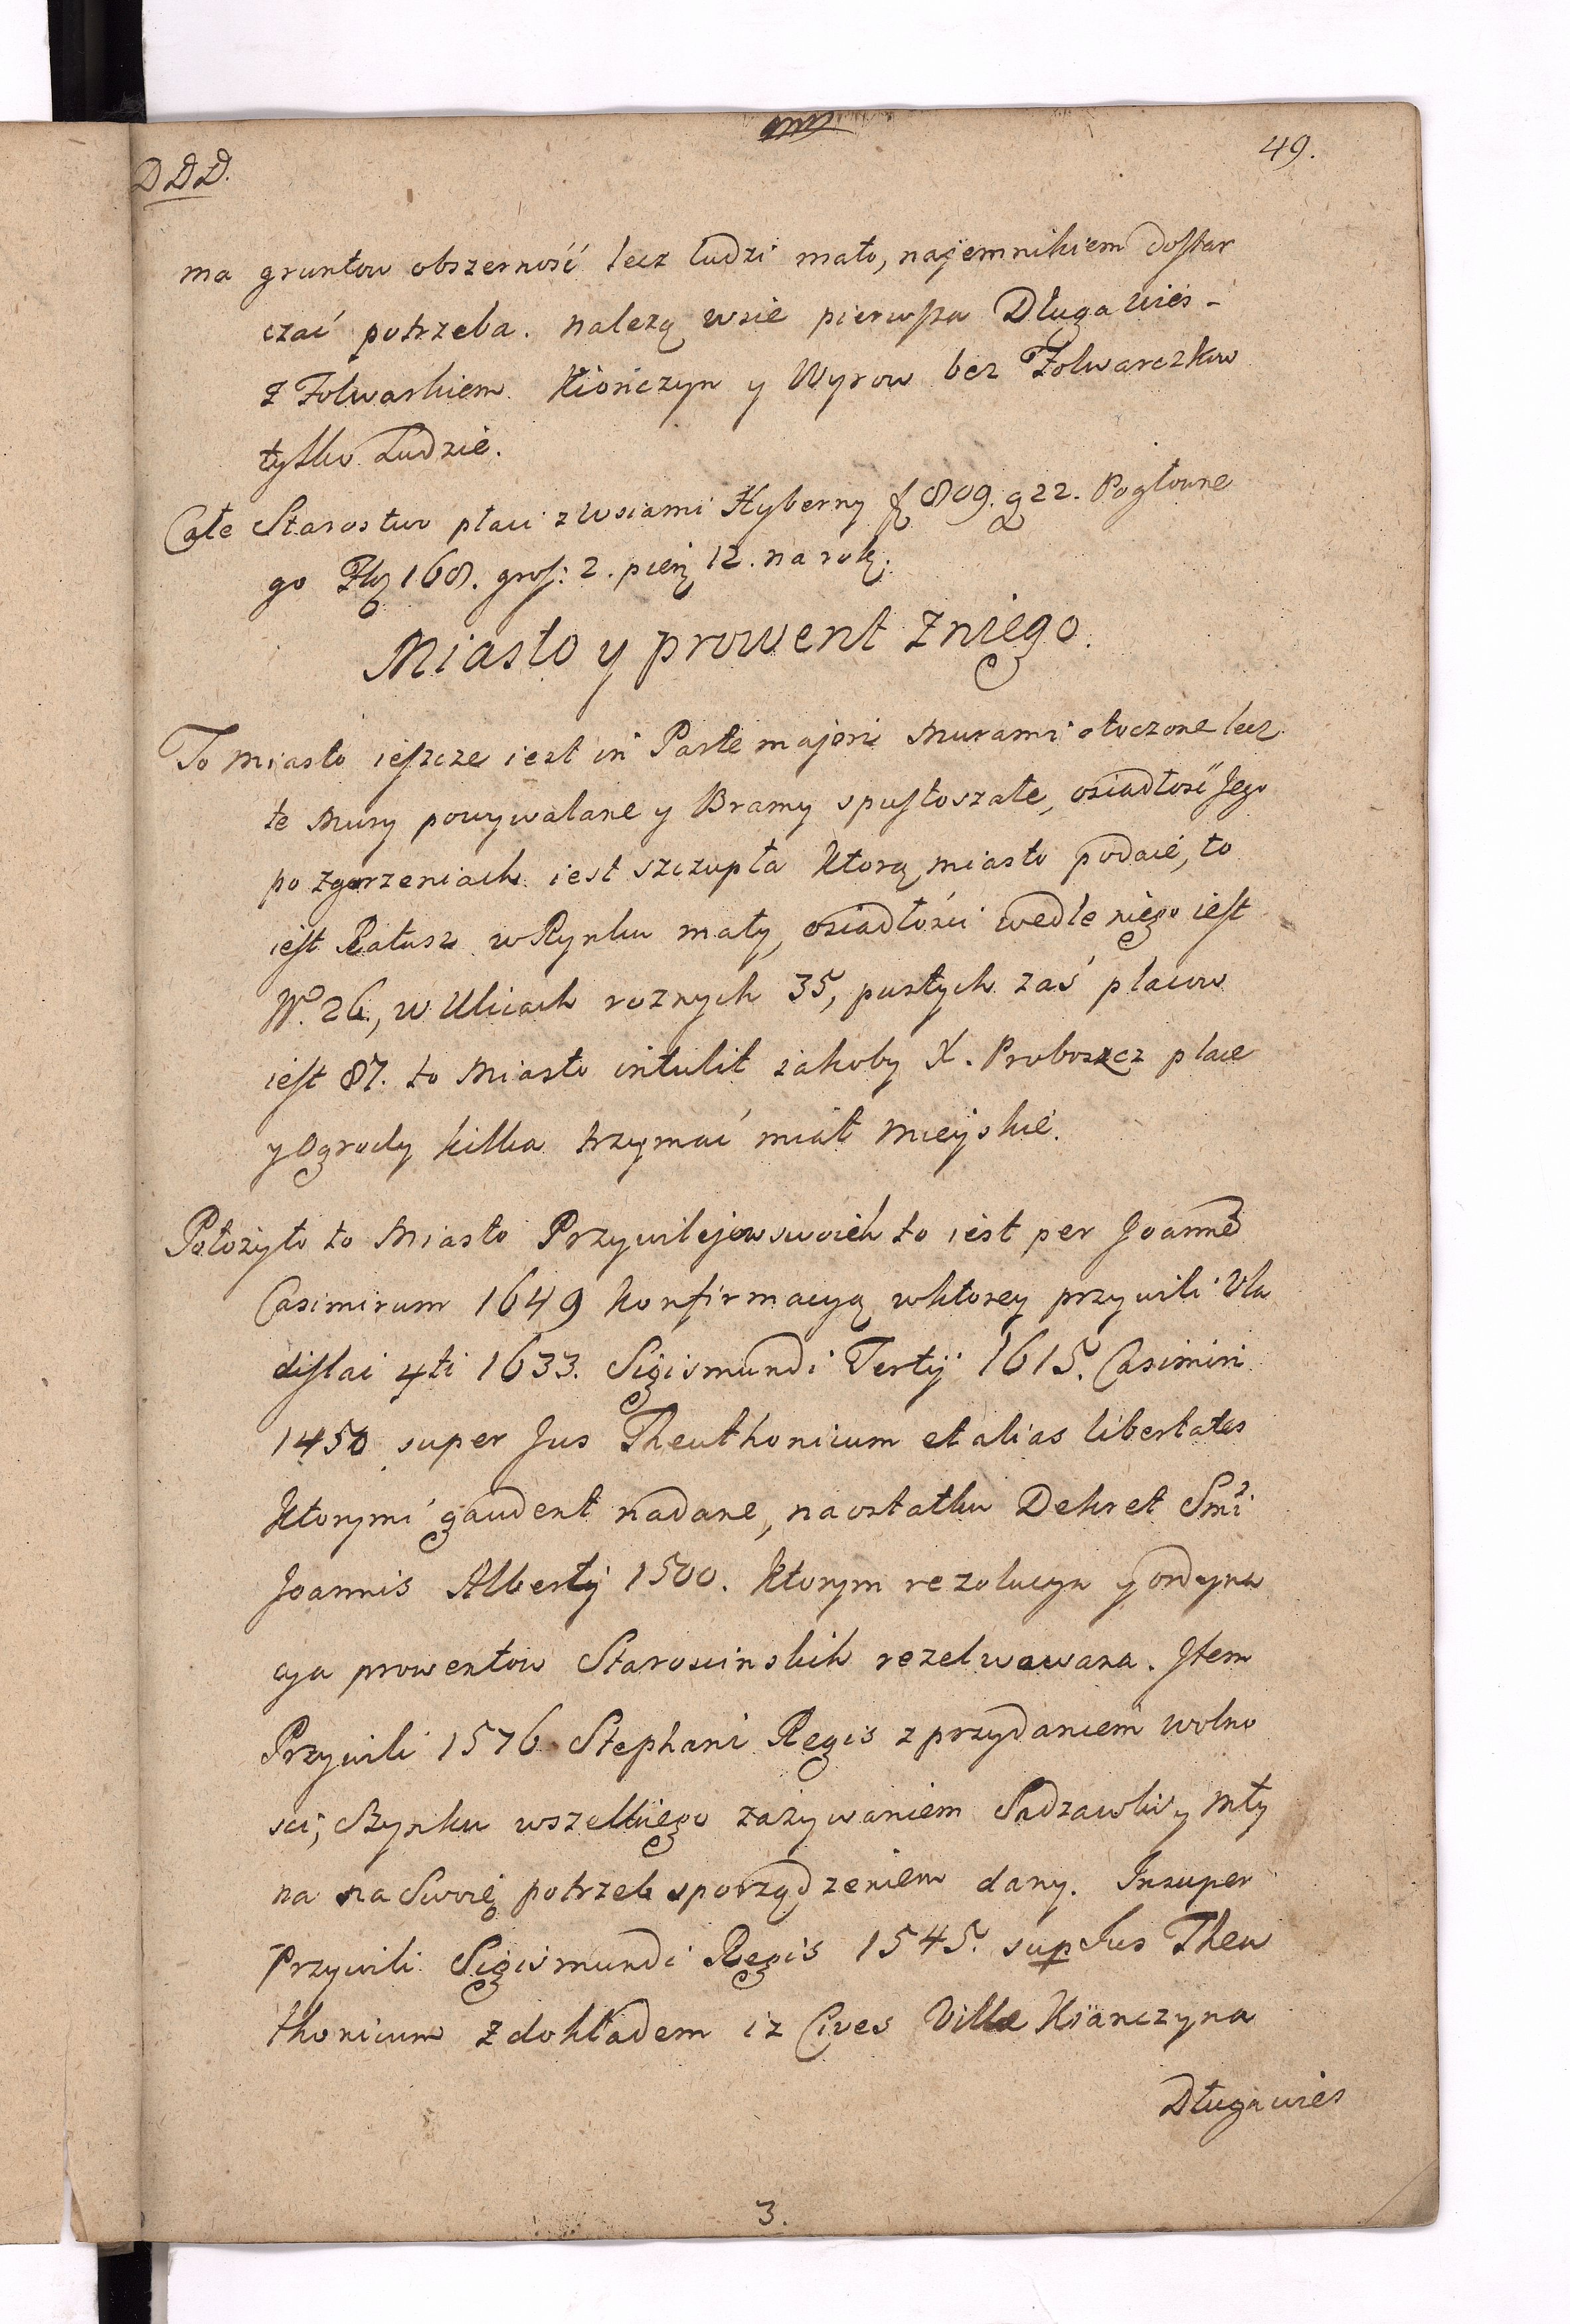 49.
DDD.
ma gruntow obszerność lecz ludzi mało, najemnikiem dostar
czać potrzeba. należą wsie pierwsza Długa wieś -
z Folwarkiem Kiończyn y Wyrow bez Folwarczkow
tylko Ludzie.
Całe Starostwo płaci z wsiami Hyberny f 809. g 22. Pogłowne
go Złoz 168. gros: 2. pienz 12. na rok.
Miasto y prowent z niego.
To miasto ieszcze iest in Parte majori Murami otoczone lecz
te Mury powywalane y Bramy spustoszałe, osiadłość Jego
po zgorzeniach iest szczupła ktorą miasto podaie, to
iest Ratusz w Rynku mały, osiadłości wedle niego iest
No. 26, w Ulicach roznych 35, pustych zaś placow
iest 87. to Miasto intulit iakoby X. Proboszcz place
y Ogrody kilka trzymać miał Mieyskie.
Położyło to Miasto Przywilejow swoich to iest per Joanne
Casimirum 1649 konfirmacyą w ktorey przywili Vla
dislai 4ti 1633. Sigismundi Tertij 1615. Casimiri
1450 super Jus Theuthonicum et alias libertates
ktorymi gaudent nadane, na ostatku Dekret Smi
Joannis Alberty 1500. ktorym rezolucya y ordyna
cya prowentow Starościnskich rezelwowana. Jtem
Przywili 1576 Stephani Regis z przydaniem wolno
sci, Szynku wszelkiego zażywaniem Sadzawki y Mły
na na Swoię potrzeb sporządzeniem dany. Insuper
Przywili Sigismundi Regis 1545. sup Jus Theu
thonicum z dokładem iz Cives Villæ Kiączyna
Długa wieś
3.